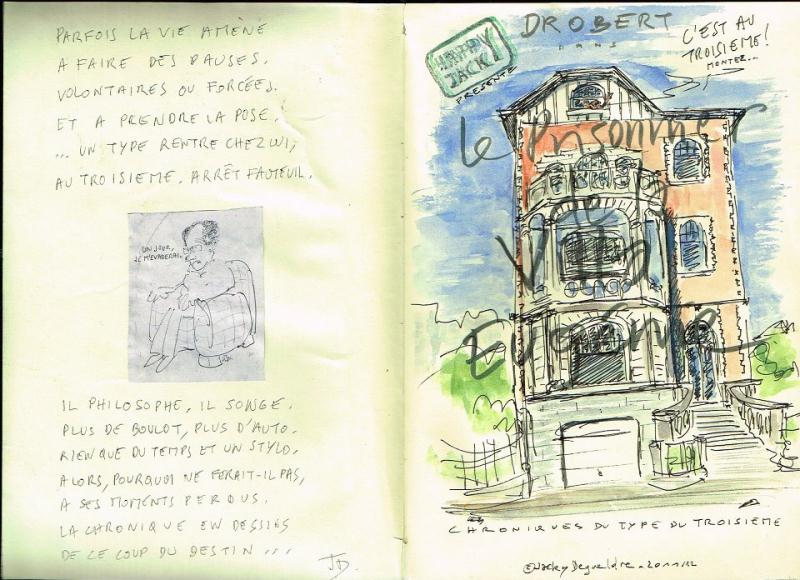 PARFOIS LA VIE AMÈNE
A FAIRE DES PAUSES.
VOLONTAIRES OU FORCÉES.
ET A PRENDRE LA POSE.
... UN TYPE RENTRE CHEZ LUI,
AU TROISIEME. ARRÊT FAUTEUIL.
UN JOUR,
JE M'EVADERAI.
IL PHILOSOPHE, IL SONGE.
PLUS DE BOULOT, PLUS D'AUTO.
RIEN QUE DU TEMPS ET UN STYLO.
ALORS, POURQUOI NE FERAIT-IL PAS,
A SES MOMENTS PERDUS,
LA CHRONIQUE EN DESSINS
DE CE COUP DU DESTIN...
JD.
DROBERT
DANS
HAPPY
JACKY
PRÉSENTE
C'EST AU
TROISIEME!
MONTEZ...
Le Prisonnier
Villa
Eugénie
CHRONIQUES DU TYPE DU TROISIEME
©Jacky Degueldre - 2011/12